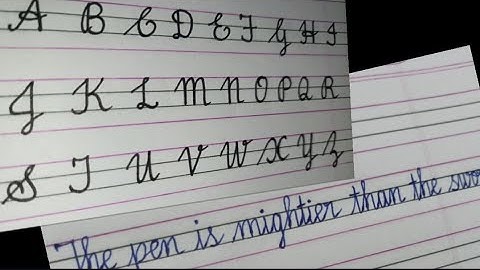 A B C D E F G H I
J K L M N O P Q R
S T U V W X Y Z
The pen is mightier than the